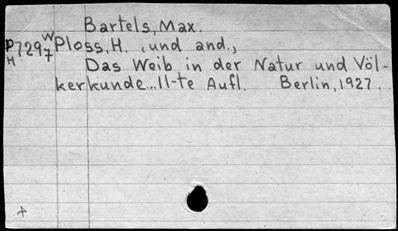 Bartels, Max.
P7297 W Ploss, H. , und and.,
H 7
Das Weib in der Natur und Völ-
kerkunde...11-te Aufl. Berlin, 1927.